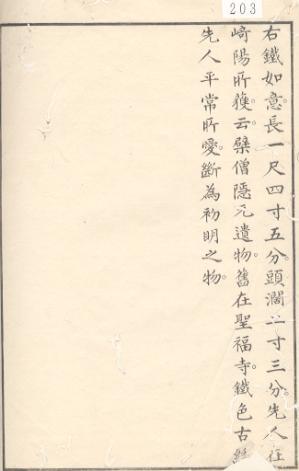 203
右鐵如意。長一尺四寸五分。頭濶二寸三分。先人在
崎陽所獲。云。檗僧隱元遺物。舊在聖福寺。鐵色古
先人平常所愛。斷為初明之物。